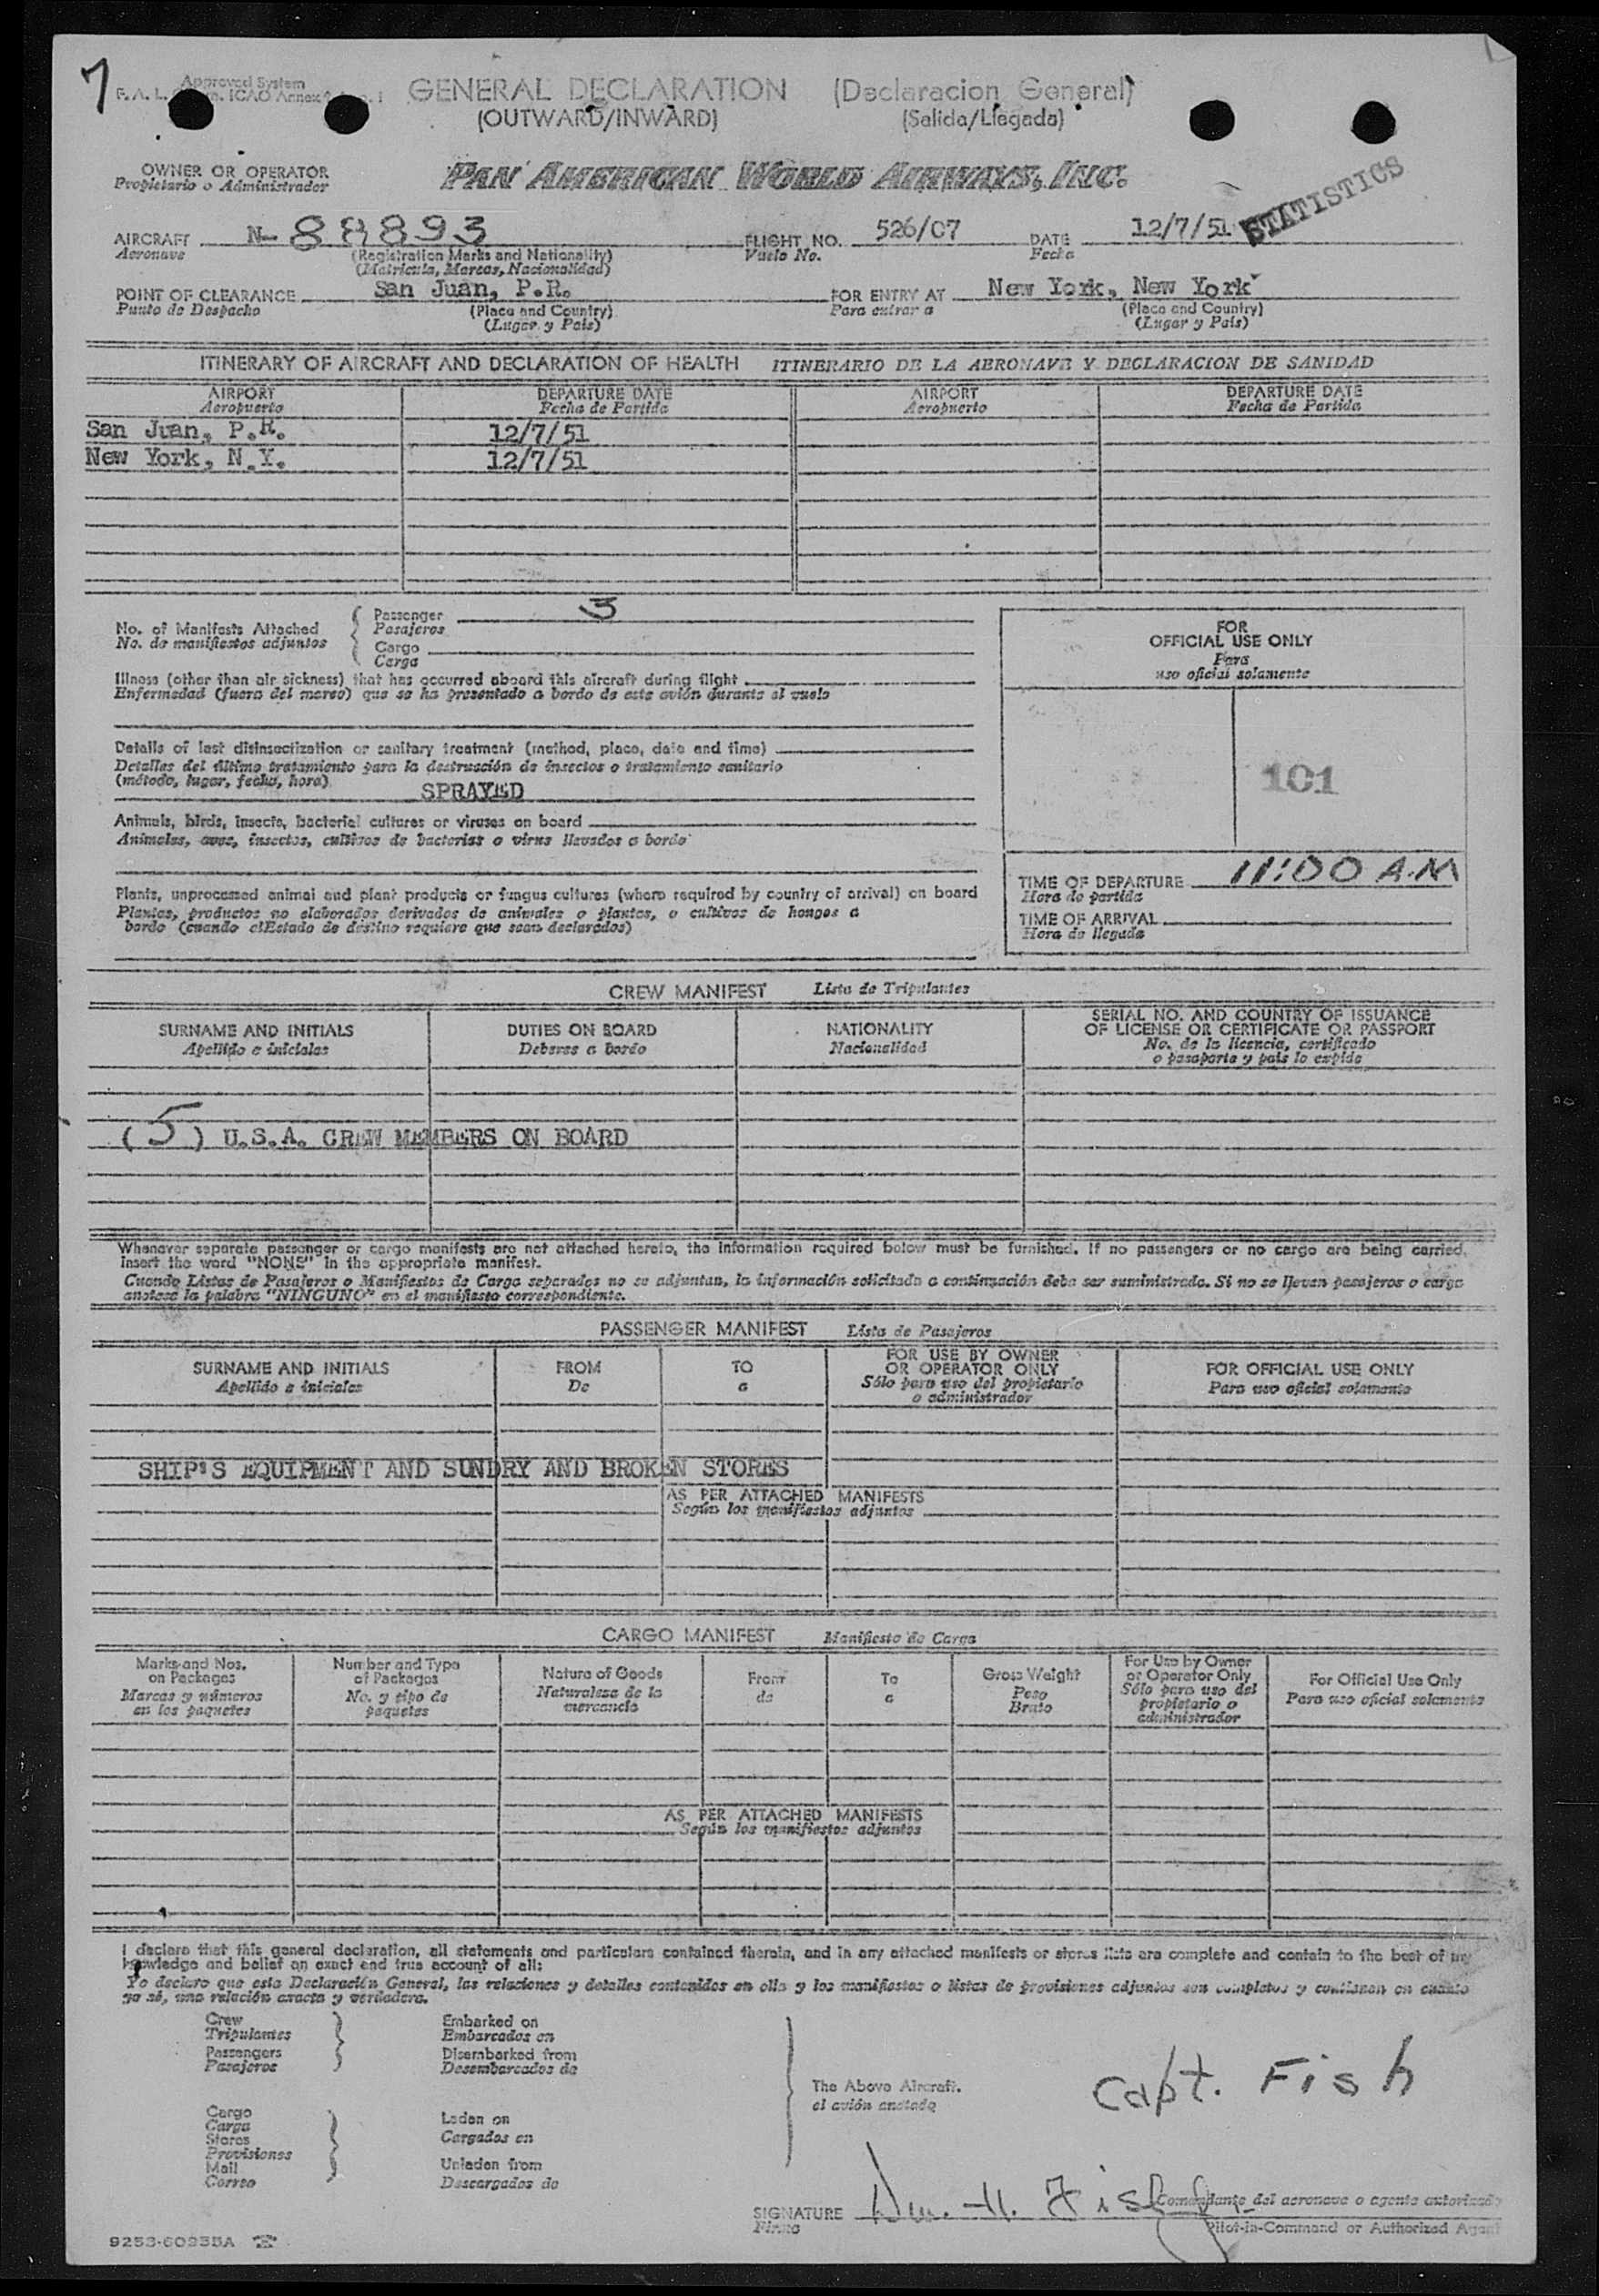 7
Approved System
F. A. L. ICAO Annex
GENERAL DECLARATION (Declaracion General)
(OUTWARD/INWARD) (Salida/Llegada)
OWNER OR OPERATOR
Propietario o Administrador
PAN AMERICAN WORLD AIRWAYS, INC.
STATISTICS
AIRCRAFT N-88893 FLIGHT NO. 526/07 DATE 12/7/51
Aeronave (Registration Marks and Nationality) Vuelo No. Fecha
(Matricula, Marcas, Nacionalidad)
POINT OF CLEARANCE San Juan, P.R. FOR ENTRY AT New York, New York
Punto de Despacho (Place and Country) Para entrar a (Place and Country)
(Lugar y Pais) (Lugar y Pais)
ITINERARY OF AIRCRAFT AND DECLARATION OF HEALTH ITINERARIO DE LA AERONAVE Y DECLARACION DE SANIDAD
AIRPORT DEPARTURE DATE AIRPORT DEPARTURE DATE
Aeropuerto Fecha de Partida Aeropuerto Fecha de Partida
San Juan, P.R. 12/7/51
New York, N.Y. 12/7/51
No. of Manifests Attached
No. de manifiestos adjuntos
Passenger 3
Pasajeros
Cargo
Carga
Illness (other than air sickness) that has occurred aboard this aircraft during flight
Enfermedad (fuera del mareo) que se ha presentado a bordo de este avión durante el vuelo
Details of last disinsectization or sanitary treatment (method, place, date and time)
Detalles del último tratamiento para la destrucción de insectos o tratamiento sanitario
(método, lugar, fecha, hora)
SPRAYED
Animals, birds, insects, bacterial cultures or viruses on board
Animales, aves, insectos, cultivos de bacterias o virus llevados a bordo
Plants, unprocessed animal and plant products or fungus cultures (where required by country of arrival) on board
Plantas, productos no elaborados derivados de animales o plantas, o cultivos de hongos a
bordo (cuando el Estado de destino requiere que sean declarados)
FOR
OFFICIAL USE ONLY
Para
uso oficial solamente
101
TIME OF DEPARTURE 11:00 A.M
Hora de partida
TIME OF ARRIVAL
Hora de llegada
CREW MANIFEST Lista de Tripulantes
SURNAME AND INITIALS DUTIES ON BOARD NATIONALITY SERIAL NO. AND COUNTRY OF ISSUANCE
OF LICENSE OR CERTIFICATE OR PASSPORT
Apellido e iniciales Deberes a bordo Nacionalidad No. de la licencia, certificado
o pasaporte y pais lo expide
(5) U.S.A. CREW MEMBERS ON BOARD
Whenever separate passenger or cargo manifests are not attached hereto, the information required below must be furnished. If no passengers or no cargo are being carried,
insert the word "NONE" in the appropriate manifest.
Cuando Listas de Pasajeros o Manifiestos de Carga separados no se adjuntan, la información solicitada a continuación debe ser suministrada. Si no se llevan pasajeros o carga
anotese la palabra "NINGUNO" en el manifiesto correspondiente.
PASSENGER MANIFEST Lista de Pasajeros
SURNAME AND INITIALS FROM TO FOR USE BY OWNER
OR OPERATOR ONLY FOR OFFICIAL USE ONLY
Apellido e iniciales De a Sólo para uso del propietario
o administrador Para uso oficial solamente
SHIP'S EQUIPMENT AND SUNDRY AND BROKEN STORES
AS PER ATTACHED MANIFESTS
Según los manifiestos adjuntos
CARGO MANIFEST Manifiesto de Carga
Marks and Nos.
on Packages
Marcas y números
en los paquetes
Number and Type
of Packages
No. y tipo de
paquetes
Nature of Goods
Naturaleza de la
mercancía
From
de
To
a
Gross Weight
Peso
Bruto
For Use by Owner
or Operator Only
Sólo para uso del
propietario o
administrador
For Official Use Only
Para uso oficial solamente
AS PER ATTACHED MANIFESTS
Según los manifiestos adjuntos
I declare that this general declaration, all statements and particulars contained therein, and in any attached manifests or stores lists are complete and contain to the best of my
knowledge and belief an exact and true account of all:
Yo declaro que esta Declaración General, las relaciones y detalles contenidos en ella y los manifiestos o listas de provisiones adjuntos son completos y contienen en cuanto
yo sé, una relación exacta y verdadera.
Crew Embarked on
Tripulantes Embarcados en
Passengers Disembarked from
Pasajeros Desembarcados de
The Above Aircraft.
el avión anotado
Capt. Fish
Cargo
Carga
Stores
Provisiones
Mail
Correo
Laden on
Cargados en
Unladen from
Descargados de
SIGNATURE Wm. H. Fish
Firma
Comandante del aeronave o agente autorizado
Pilot-in-Command or Authorized Agent
9253-60235A